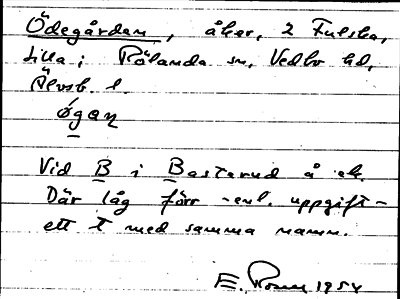 Ödegården, åker, 2 Fulska,
lilla; Rölanda sn, Vedbo hd,
Älvsb. l.
øgaɳ
Vid B i Basterud å ek.
Där låg förr - enl. uppgift -
ett t med samma namn.
E. 1954